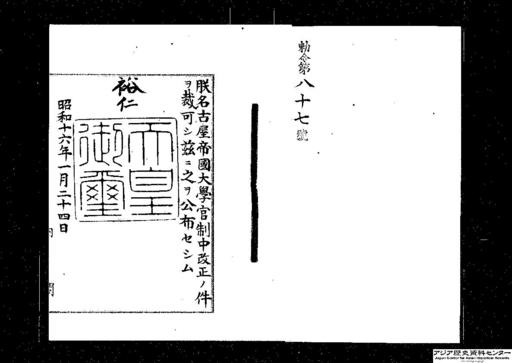 勅令第八十七號
朕名古屋帝國大學官制中改正ノ件
ヲ裁可シ茲ニ之ヲ公布セシム
裕仁
天皇
御璽
昭和十六年一月二十四日
内閣
アジア歴史資料センター
Japan Center for Asian Historical Records